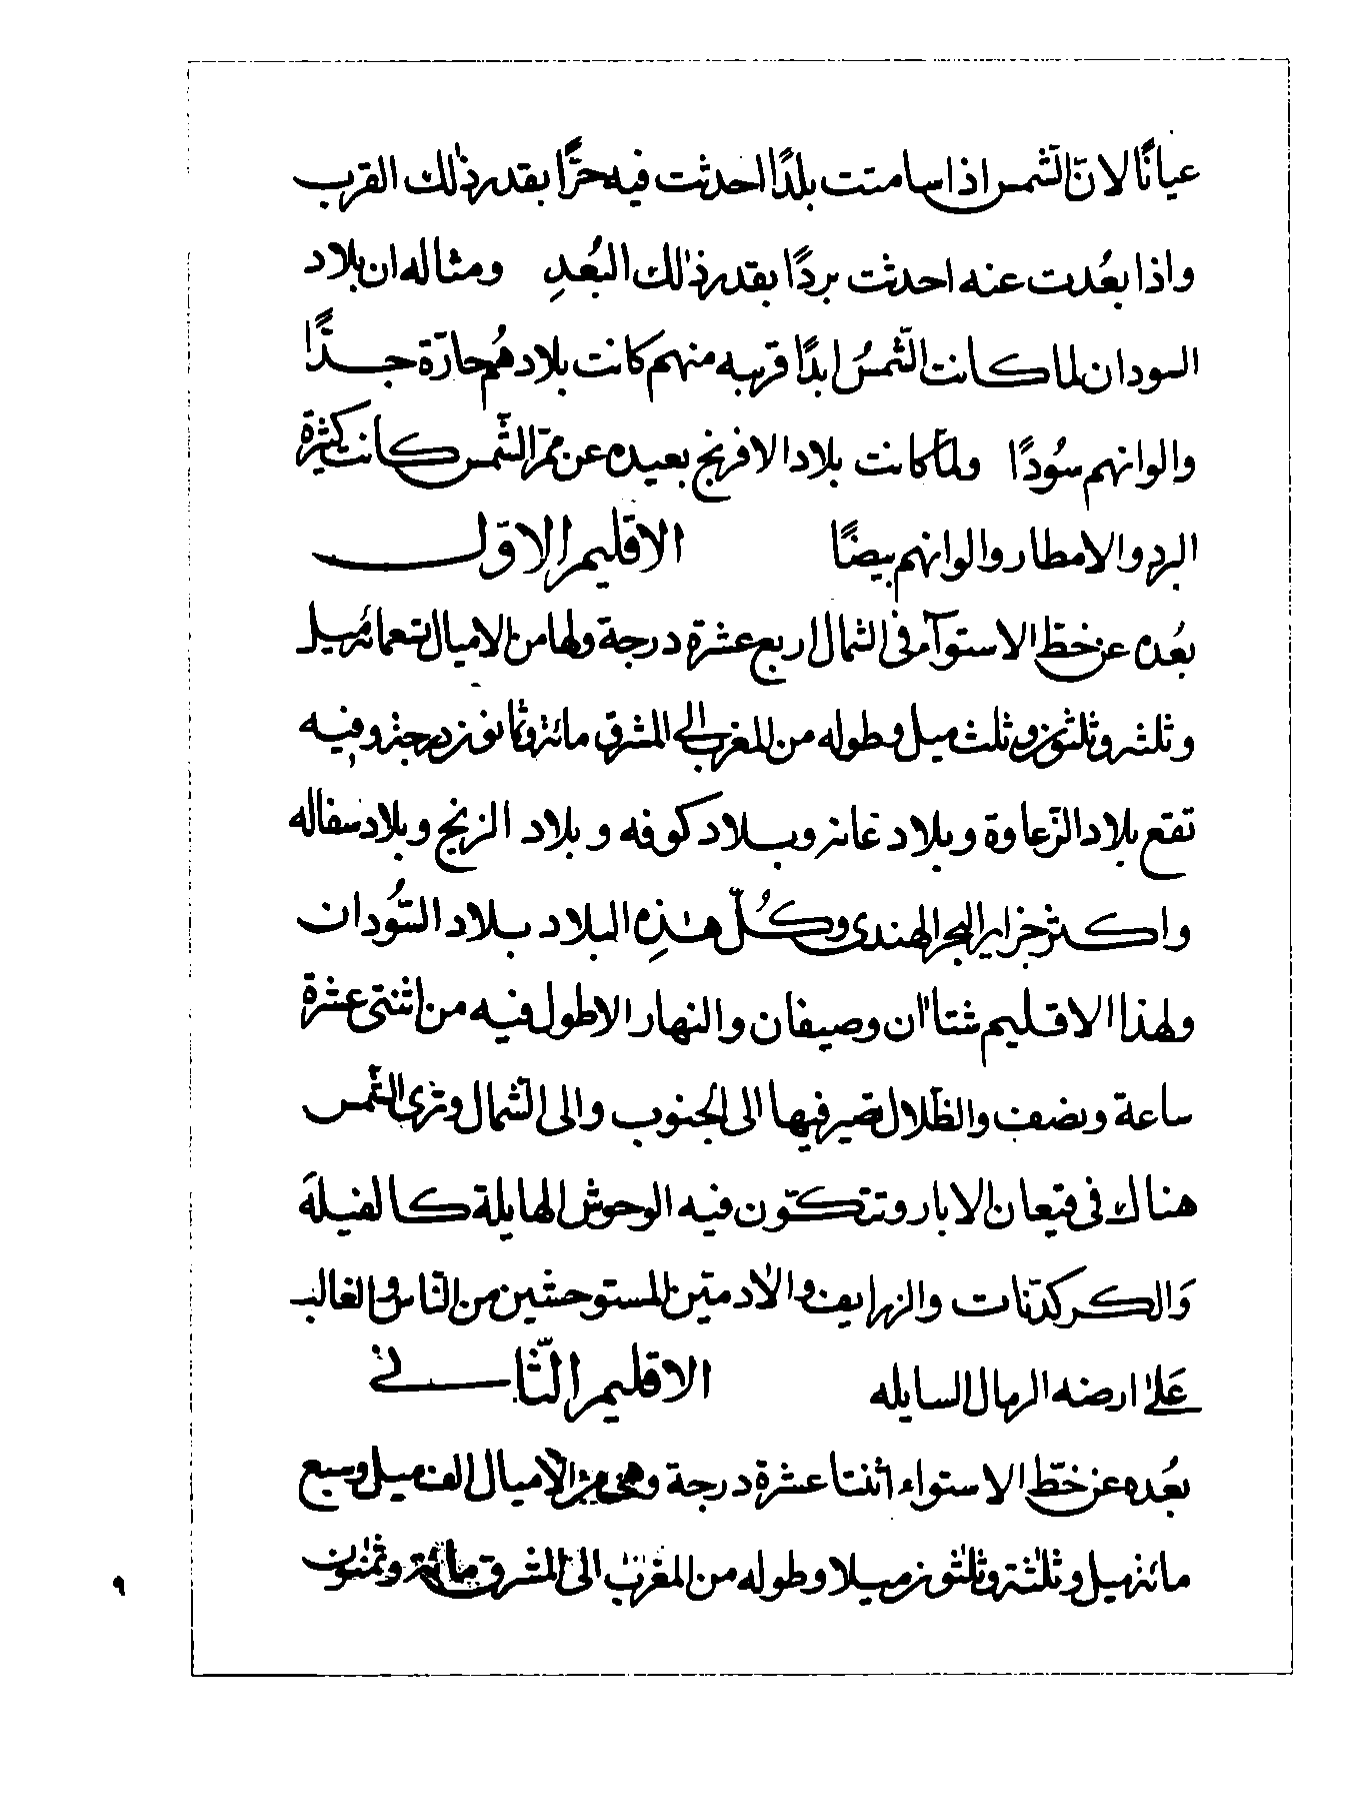 عيانًا لانّ الشّمس اذا سامتت بلدًا احدثت فيه حرًّا بقدر ذلك القرب
واذا بعُدت عنه احدثت بردًا بقدر ذلك البُعدِ ومثاله ان بلاد
السودان لما كانت الشّمسُ ابدًا قريبه منهم كانت بلادهُم حارّة جدًّا
والوانهم سُودًا ولمّا كانت بلاد الافرنج بعيده عن ممرّ الشّمس كانت كثيرة
البرد والامطار والوانهم بيضًا الاقليم الاوّل
بعُده عن خطّ الاستوآء فى الشمال اربع عشرة درجة ولها من الاميال تسعمائة ميل
وثلثه وثلثون وثلث ميل وطوله من المغرب الى المشرق مائة وثمانون درجة وفيه
تقع بلاد الزّعاوة وبلاد غانه وبلاد كوفه وبلاد الزنج وبلاد سفاله
واكثر جزاير البحر الهندى وكُلّ هٰذِه البلاد بلاد السُّودان
ولهذا الاقليم شتاان وصيفان والنهار الاطول فيه من اثنتى عشرة
ساعة ونصف والظّلال تصير فيها الى الجنوب والى الشّمال وترى الشّمس
هناك فى قيعان الابار وتتكوّن فيه الوحوش الهايلة كالفيلة
وَالكركدّنات والزرايف والاٰدميّن المستوحشين من النّاس والغالب
عَلىٰ ارضه الرمال السايله الاقليم الثّانى
بعُده عن خطّ الاستواء اثنتا عشرة درجة وهى من الاميال الف ميل وسبع
مائة ميل وثلٰثة وثلٰثون ميلا وطوله من المغرب الى المشرق مائة وثمٰنون
٩